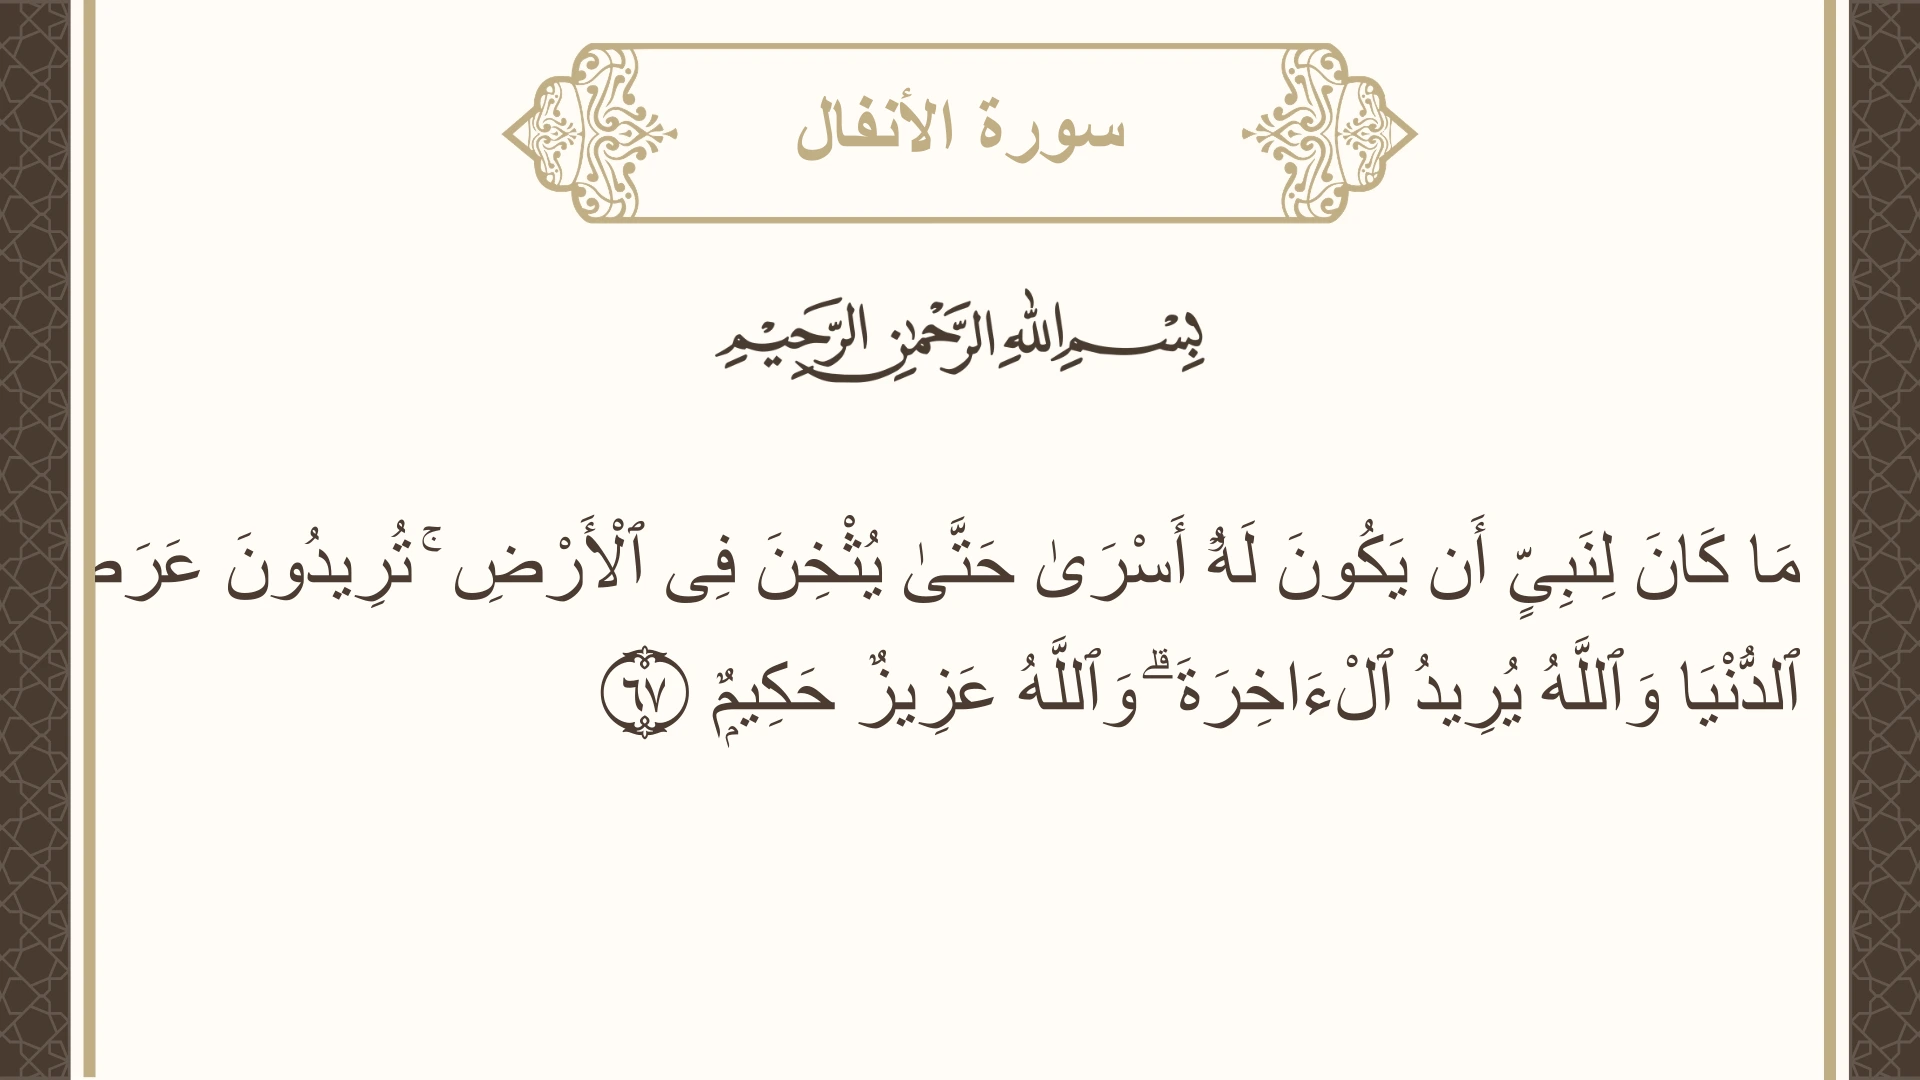 سورة الأنفال
بِسْمِ اللهِ الرَّحْمٰنِ الرَّحِيْمِ
مَا كَانَ لِنَبِىٍّ أَن يَكُونَ لَهُۥٓ أَسْرَىٰ حَتَّىٰ يُثْخِنَ فِى ٱلْأَرْضِ ۚ تُرِيدُونَ
ٱلدُّنْيَا وَٱللَّهُ يُرِيدُ ٱلْءَاخِرَةَ ۗ وَٱللَّهُ عَزِيزٌ حَكِيمٌۭ ٦٧